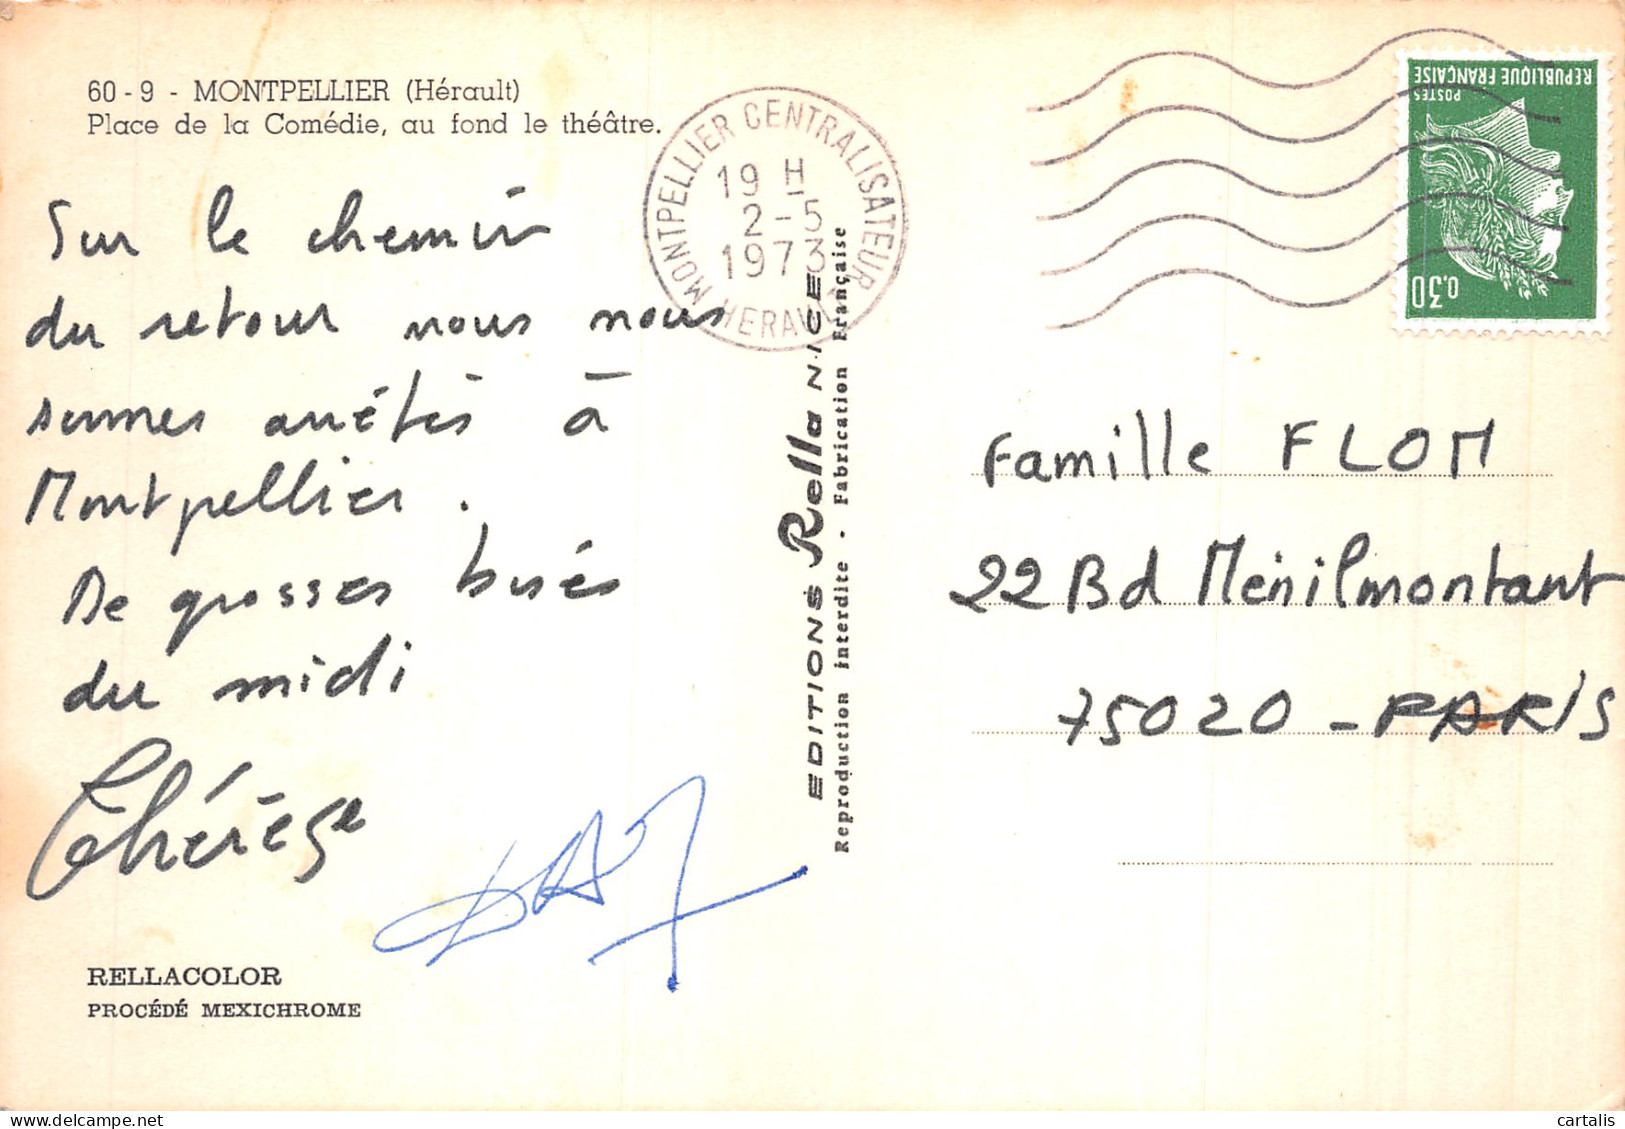 60-9 - MONTPELLIER (Hérault)
Place de la Comédie, au fond le théâtre.
Sur le chemin
du retour nous nous
sommes arrêtés à
Montpellier.
De grosses bises
du midi
Thérèse
RELLACOLOR
PROCÉDÉ MEXICHROME
EDITIONS Rella NICE
Reproduction interdite - Fabrication Française
MONTPELLIER CENTRALISATEUR
19 H
2-5
1973
HERAULT
REPUBLIQUE FRANÇAISE
POSTES
0,30
Famille FLOM
22 Bd Ménilmontant
75020 - PARIS
cartalis